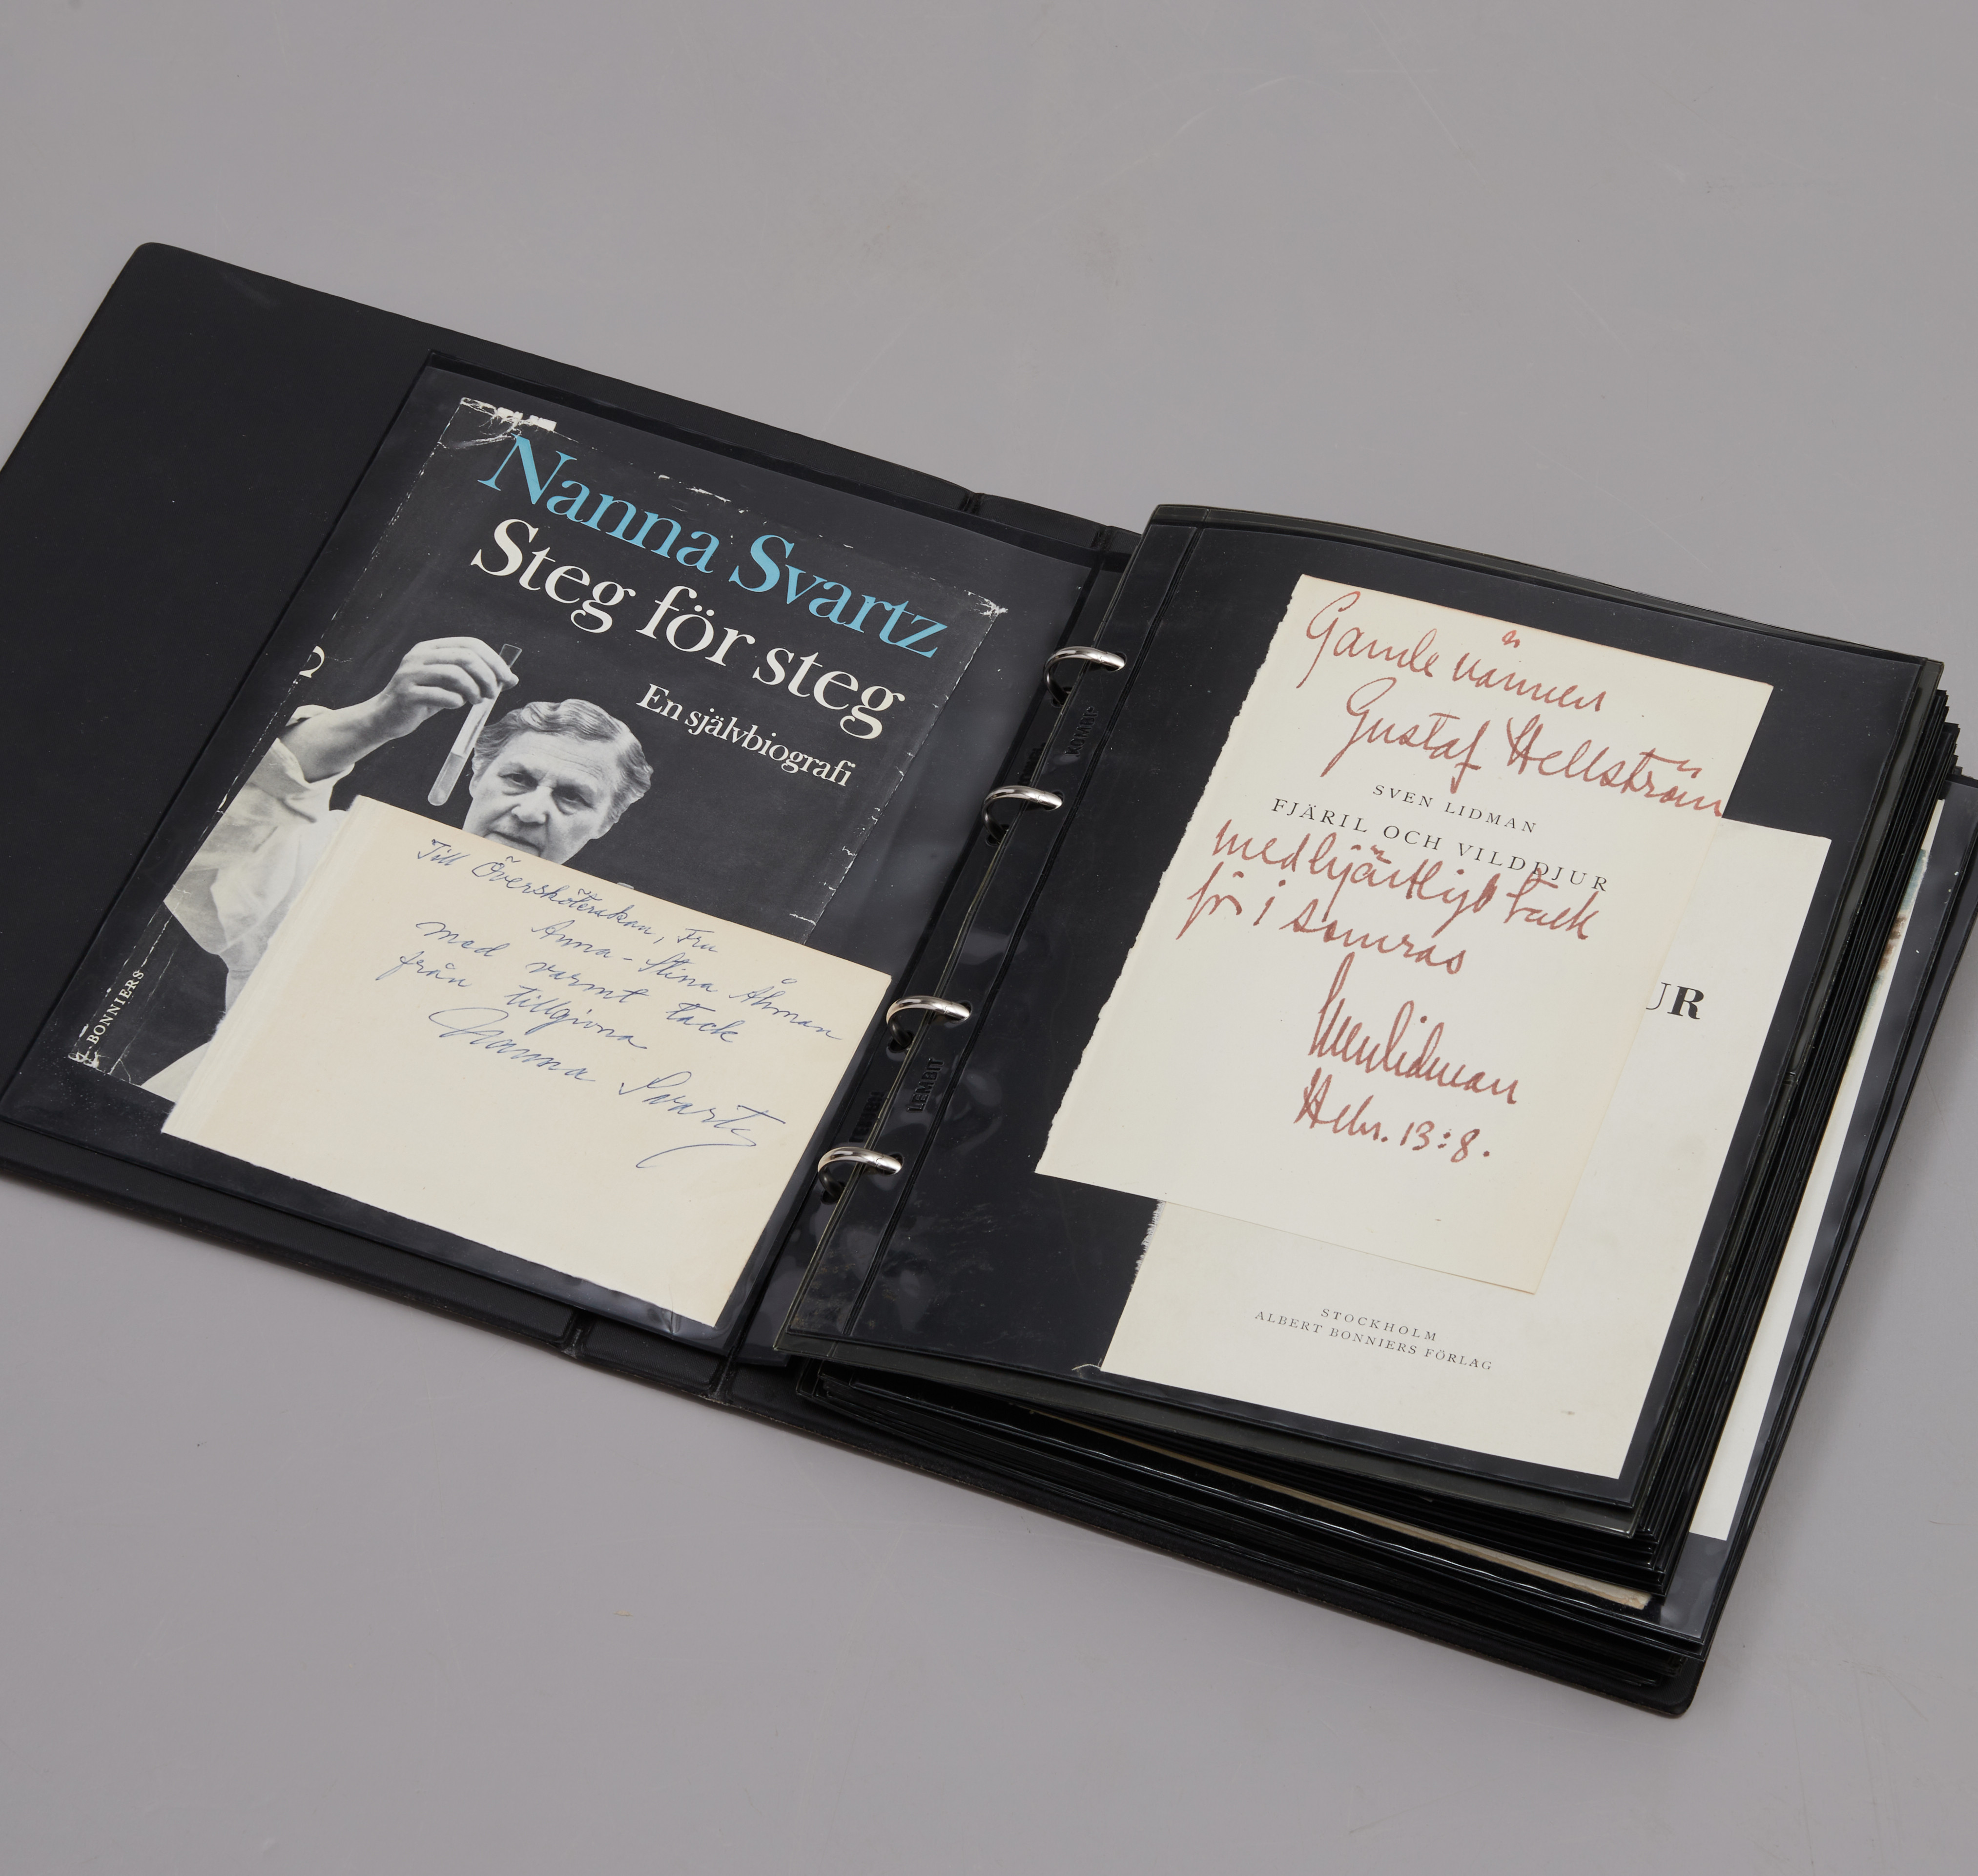 Nanna Svartz
Steg för steg
En självbiografi
BONNIERS
Till Översköterskan, Fru
Anna-Stina Åhman
med varmt tack
från tillgivna
Nanna Svartz
LEMBIT
Gamle vännen
Gustaf Hellström
SVEN LIDMAN
FJÄRIL OCH VILDDJUR
med hjärtligt tack
för i somras
Sven Lidman
Hebr. 13:8.
UR
STOCKHOLM
ALBERT BONNIERS FÖRLAG